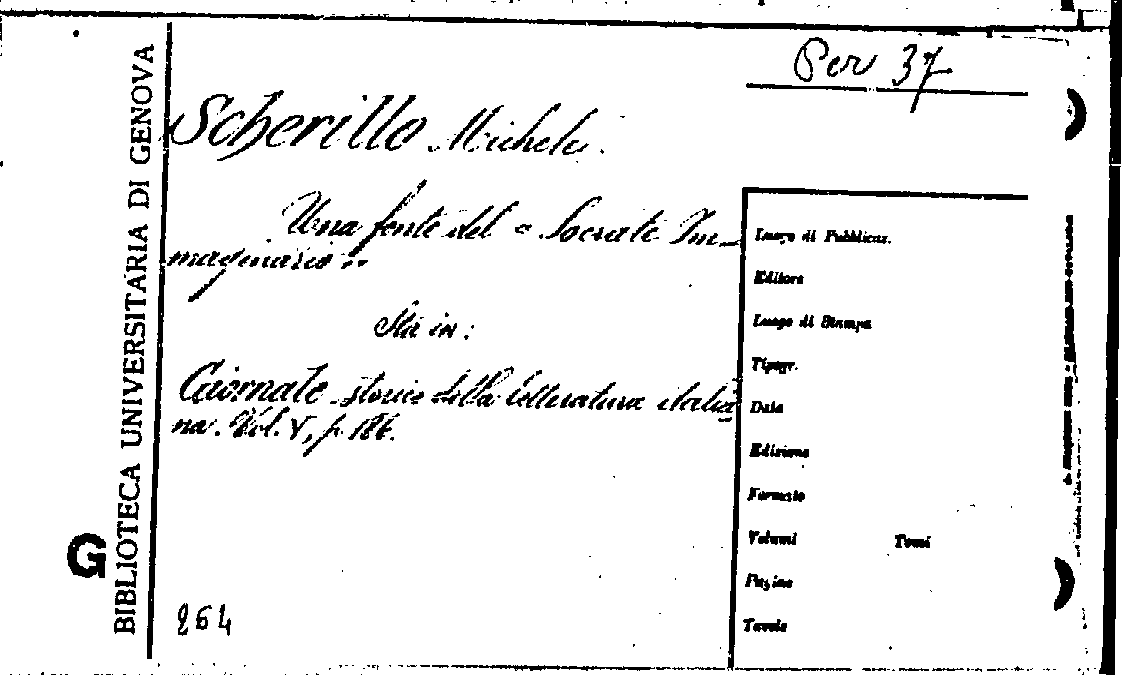 Per 37
Scherillo Michele.
Una fonte del « Socrate Im-
maginario ».
Sta in:
Giornale storico della letteratura italia
na. Vol. V, p. 186.
264
BIBLIOTECA UNIVERSITARIA DI GENOVA
G
Luogo di Pubblicaz.
Editore
Luogo di Stampa
Tipogr.
Data
Edizione
Formato
Volumi Tomi
Pagine
Tavole